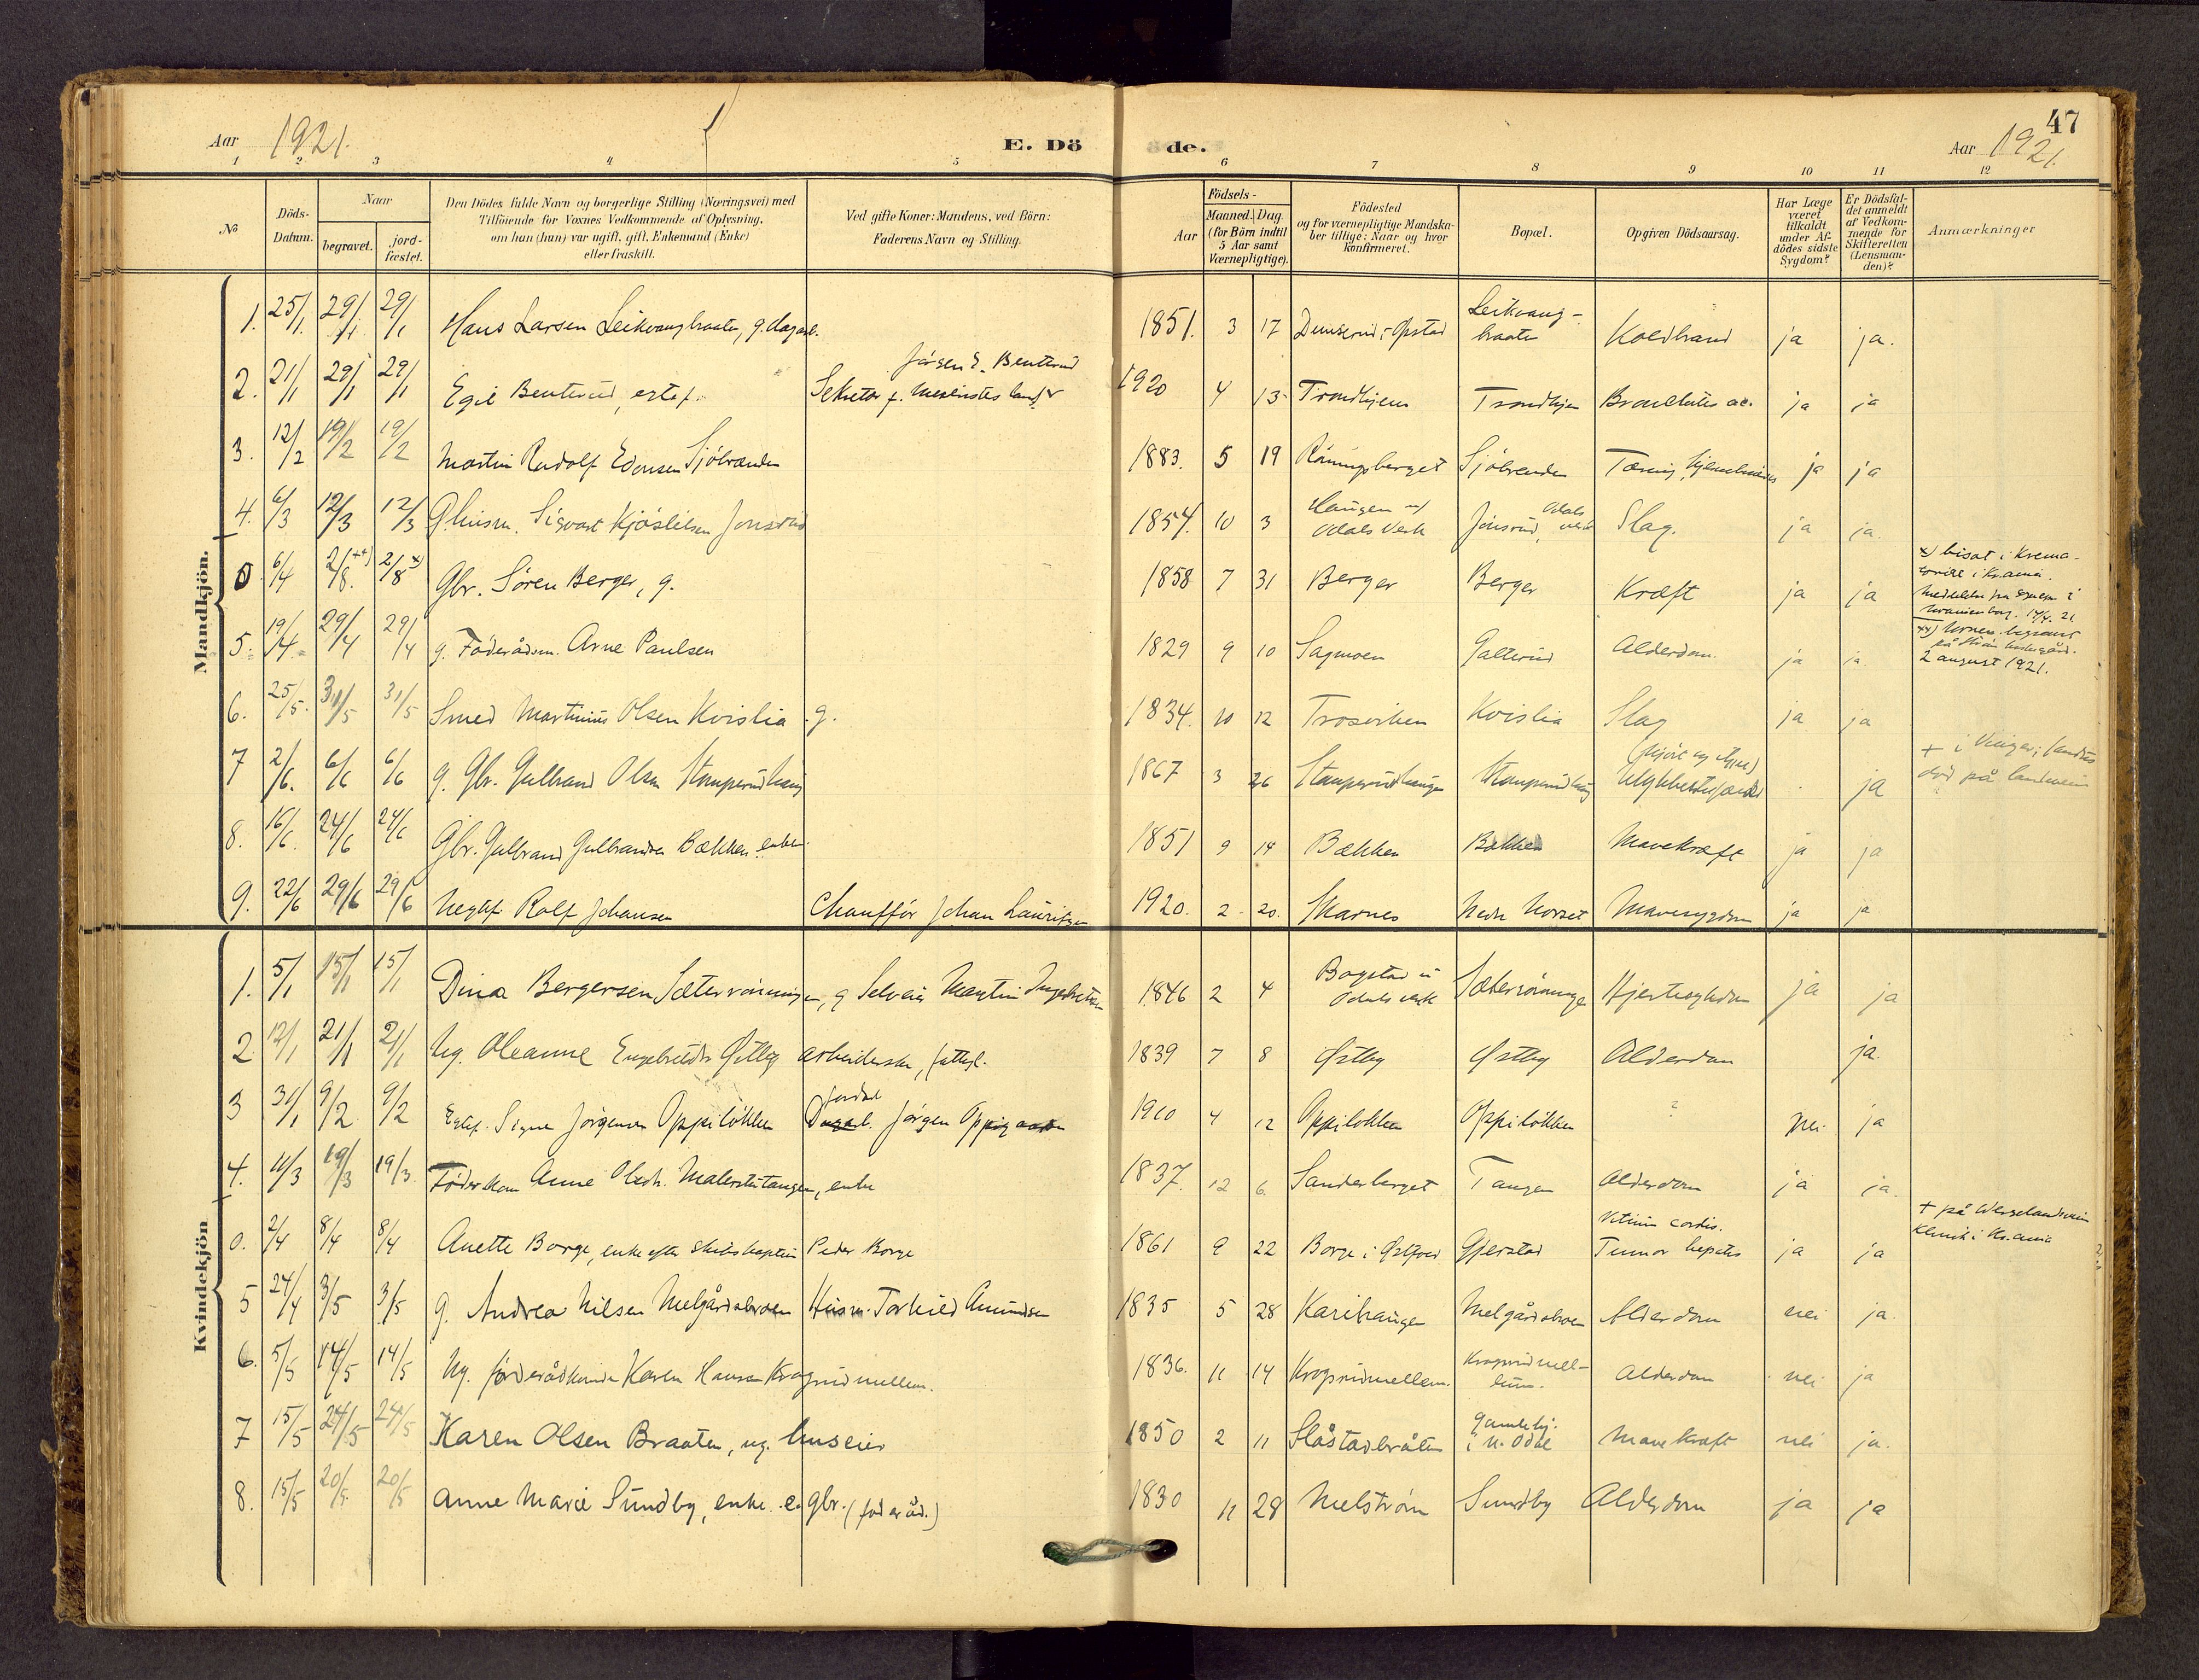 47
Aar 1921.
E. Dö de.
Aar 1921.
1 2 3 4 5 6 7 8 9 10 11 12
No
Döds-Datum.
Naar
begravet.
jord-fæstet.
Den Dödes fulde Navn og borgerlige Stilling (Næringsvei) med
Tilföiende for Voxnes Vedkommende af Oplysning,
om han (hun) var ugift, gift, Enkemand (Enke)
eller fraskilt.
Ved gifte Koner: Mandens, ved Börn:
Faderens Navn og Stilling.
Födsels-
Aar
Maaned. Dag.
(for Börn indtil
5 Aar samt
Værnepligtige).
Födested
og for værnepligtige Mandska-
ber tillige: Naar og hvor
konfirmeret.
Bopæl.
Opgiven Dödsaarsag.
Har Læge
været
tilkaldt
under Af-
dödes sidste
Sygdom?
Er Dödsfal-
det anmeldt
af Vedkom-
mende for
Skifteretten
(Lensman-
den)?
Anmærkninger
Mandkjön.
1. 25/1 29/1 29/1 Hans Larsen Leikvangbraaten, g. dagarb. 1851. 3 17 Opstad Leikvang-
braaten Koldbrand ja ja.
2. 21/1 29/1 29/1 Egil Benterud, ektef. Jörgen E. Benterud
Sekretær f. 1920 4 13 Trondhjem Trondhjem Bronchitis ac. ja ja
3. 12/2 19/2 19/2 Martin Rudolf Edvinsen Sjöbranden 1883. 5 19 Röningsberget Sjöbrenden Tæring, ja ja
4. 6/3 12/3 12/3 G. husm. Sigvart Kjöstelsen Jonsrud 1854. 10 3 Haugen v/
Odals Verk Jonsrud, Odals
verk Slag. ja ja.
0. 6/4 2/8. ++) 2/8 x) Gbr. Sören Berger, g. 1858 7 31 Berger Berger Kræft ja ja x) bisat i Krema-
toriet i Kr.ania.
Meddelelse fra i
Uranienborg. 14/4. 21
xx) begravet
på
2 august 1921.
5. 19/4 29/4 29/4 g. Föderådsm. Arne Paulsen 1829 9 10 Sagmoen Galterud Alderdom. ja ja
6. 25/5. 31/5 31/5 Smed Martinius Olsen Kvislia g. 1834. 10 12 Trosviken Kvislia Slag ja ja
7 2/6. 6/6 6/6 g. Gbr. Gulbrand Olsen Stomperudhaug 1867 3 26 Stomperudhaugen Stomperudhaug Ulykkestilfælde ja + i Vinger; fandtes
död på landveien
8. 16/6. 24/6 24/6 Gbr. Gulbrand Gulbrandsen Bækken enkem. 1851 9 14 Bækken Bækken Mavekræft ja ja
9. 22/6 29/6 29/6 Uegtef. Rolf Johansen Chaufför Johan Lauritzen 1920. 2 20. Skarnes Nedre Korset Mavesygdom ja ja
Kvindekjön
1. 5/1 15/1 15/1 Dina Bergersen Sæterröningen, g. Selveier Martin Ingebretsen 1846 2 4 Bogstad v/
Odals verk Sæterröningen Hjertesygdom ja ja
2 12/1 21/1 21/1 Ug. Oleanne Engebretsdtr Östby arbeiderske, fattigl. 1839 7 8 Östby Östby Alderdom ja.
3 31/1 9/2 9/2 Egtef. Signe Jörgensen Oppilökken Jordarb. Jörgen 1910 4 12 Oppilökken Oppilökken ? nei ja
4. 11/3 19/3 19/3 Föderkone Anne Olsdtr. Malerstutangen, enke 1837. 12 6. Sanderberget Tangen Alderdom ja ja.
0. 2/4 8/4 8/4 Anette Borge, enke efter skibskaptein Peder Borge 1861 9 22 Borge i Östfold Gjerstad Vitium cordis.
Tumor hepatis ja ja + på Wergelandsveien
Klinik i Kr.ania
5 24/4 3/5 3/5 g. Andrea Nilsen Melgårdsbroen Husm. Torkild Amundsen 1835 5 28 Karihaugen Melgårdsbroen Alderdom nei ja
6. 5/5 14/5 14/5 Ug. föderådkvinde Karen Hansen Krogsrudmellem. 1836. 11 14 Krogsrudmellem. Krogsrudmell-
em. Alderdom nei ja
7 15/5 24/5 24/5 Karen Olsen Braaten, ug. huseier 1850 2 11 Slåstadbråten Gamleby.
i N. Odal Mavekræft nei ja.
8. 15/5 20/5 20/5 Anne Marie Sundby, enke e. gbr. (föderåd.) 1830 11 28 Melström Sundby Alderdom ja ja